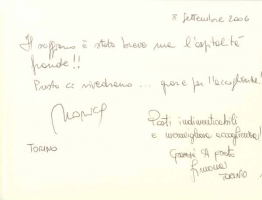 8 Settembre 2006
Il soggiorno è stato breve ma l'ospitalità
grande!!
Presto ci rivedremo... grazie per l'accoglienza!
Monica
TORINO
Posti indimenticabili
e meravigliosa accoglienza!
Grazie di
Simona
TORINO